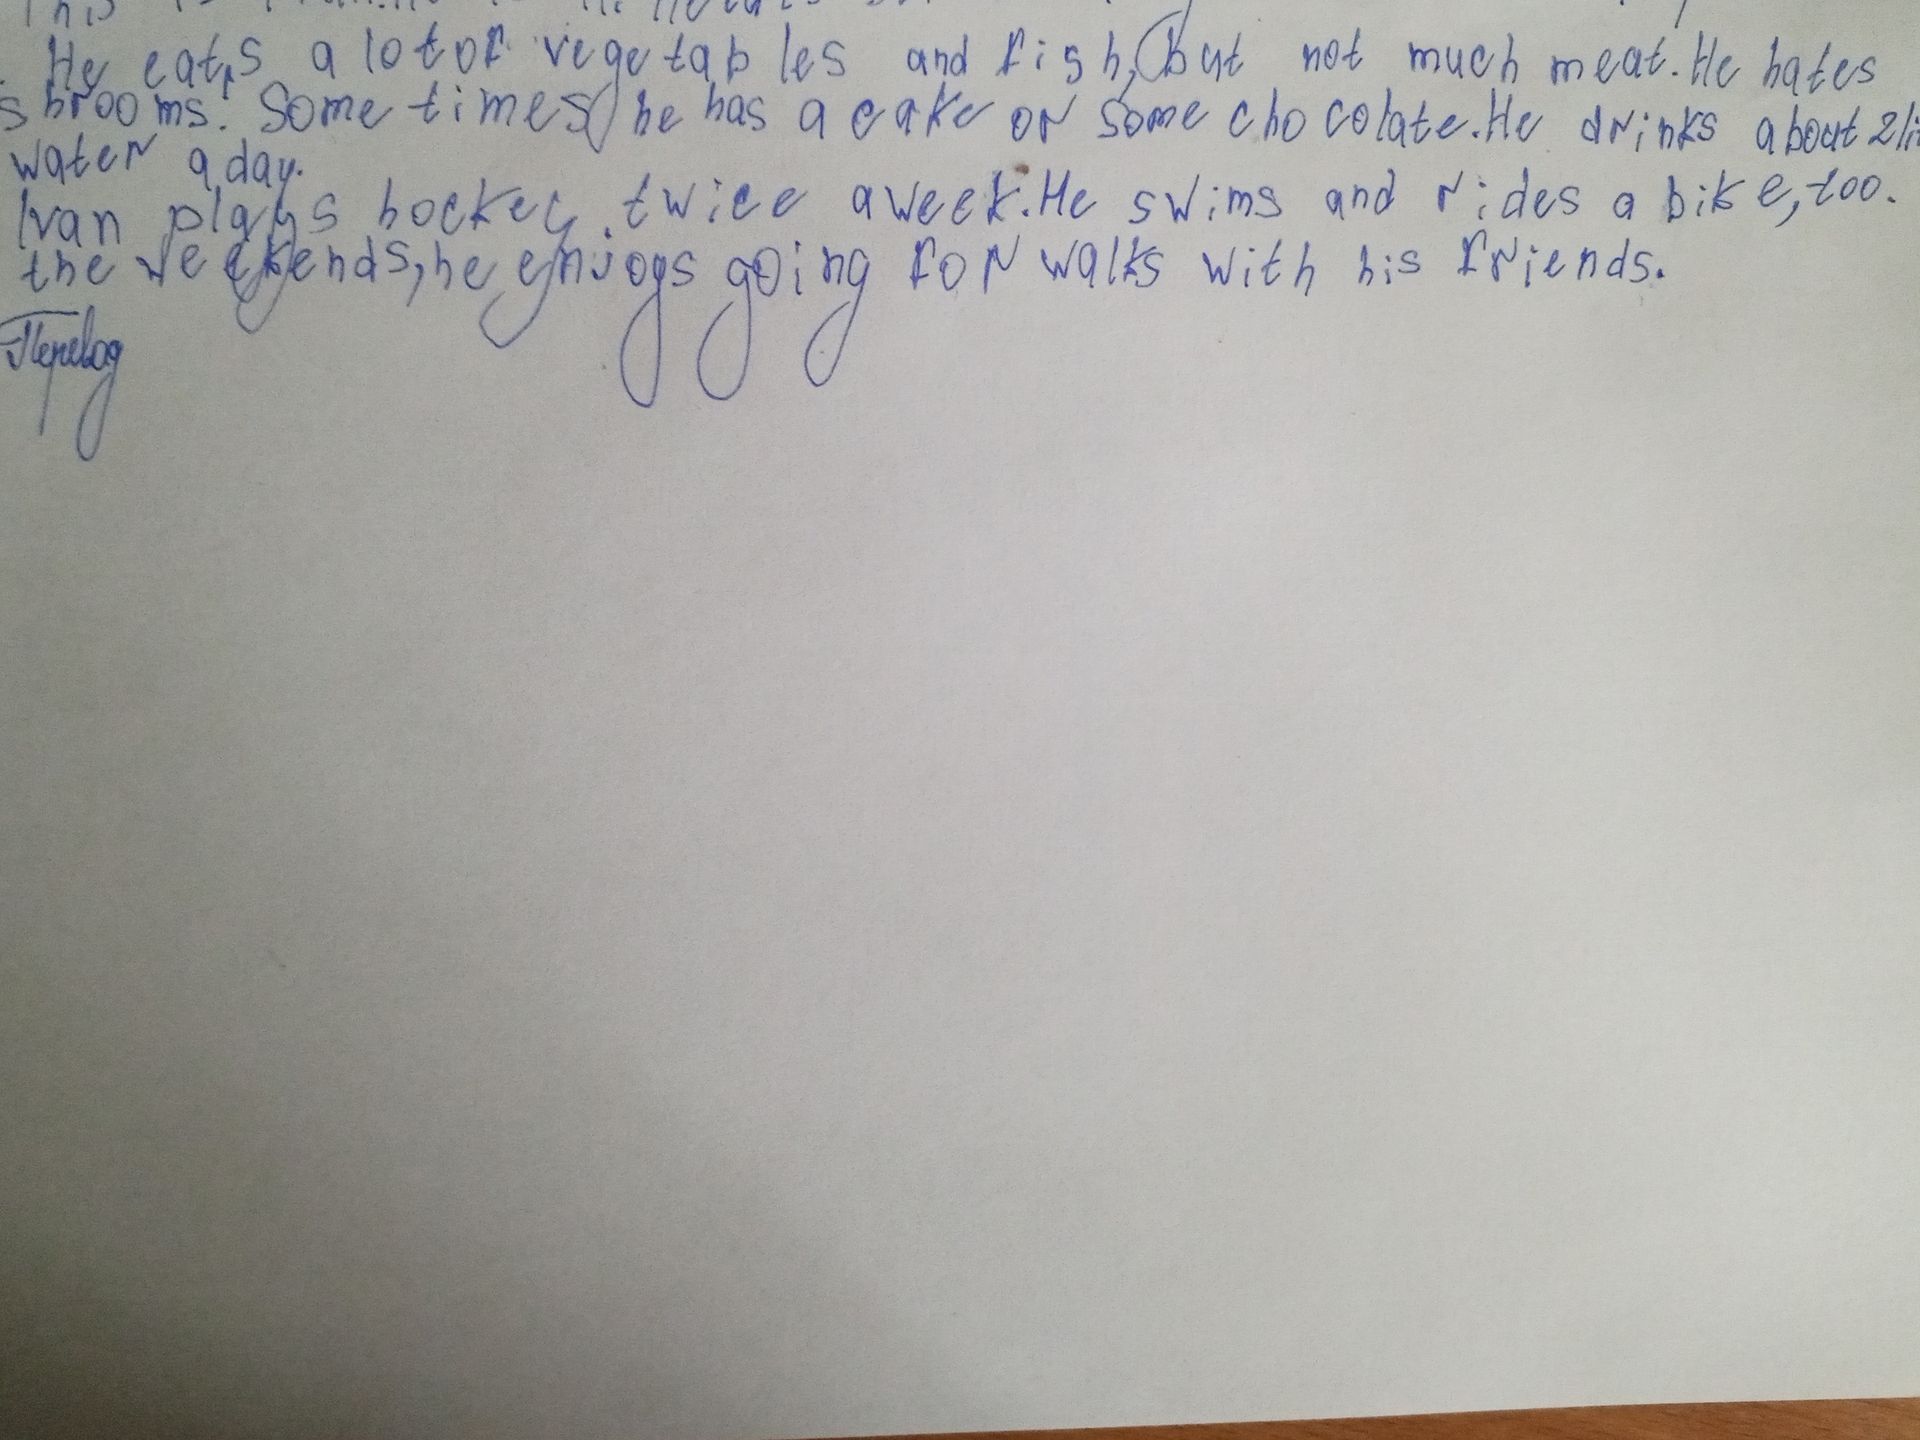 This is
He eats a lot of vegetables and fish, but not much meat. He hates
shrooms. Sometimes he has a cake or some chocolate. He drinks about 2 li
water a day.
Ivan plays hockey twice a week. He swims and rides a bike, too.
the weekends, he enjoys going for walks with his friends.
Перевод